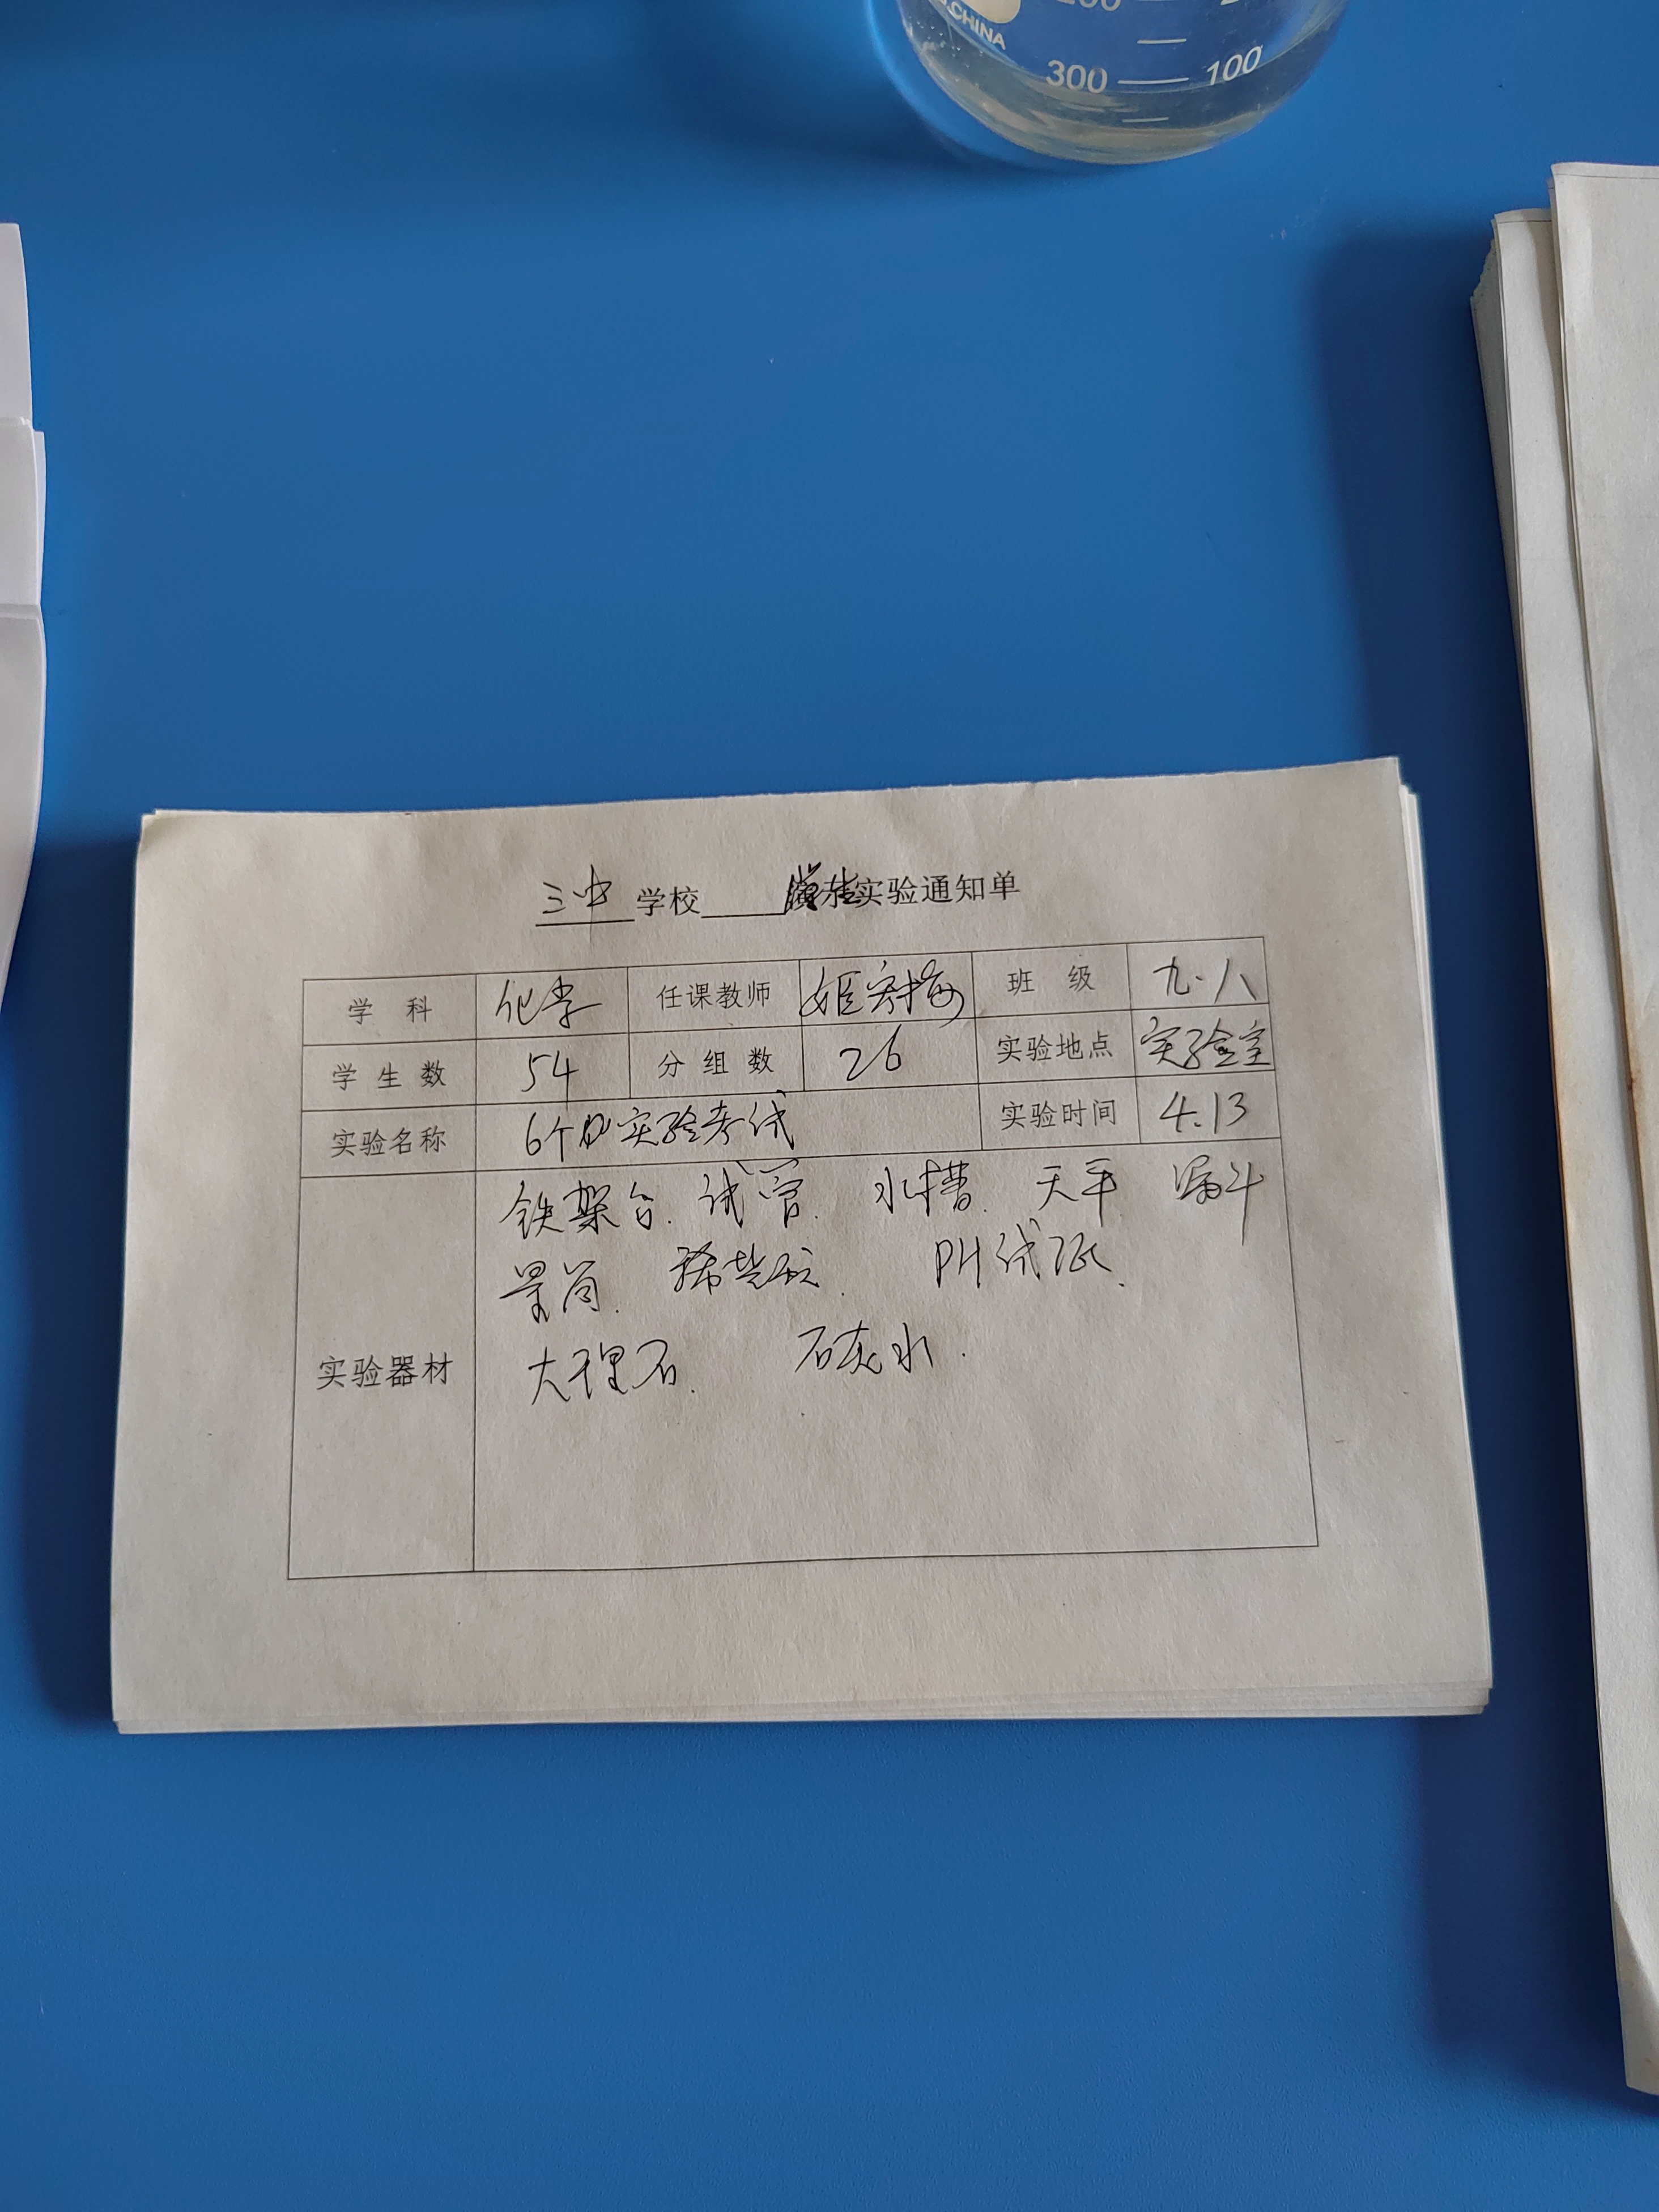 CHINA
300 100
三中 学校 学生实验通知单
学 科 化学 任课教师 班 级 九·八
学 生 数 54 分 组 数 26 实验地点 实验室
实验名称 6个实验考试 实验时间 4.13
实验器材
铁架台. 试管. 水槽. 天平. 漏斗
量筒. 稀盐酸. PH试纸.
大理石. 石灰水.